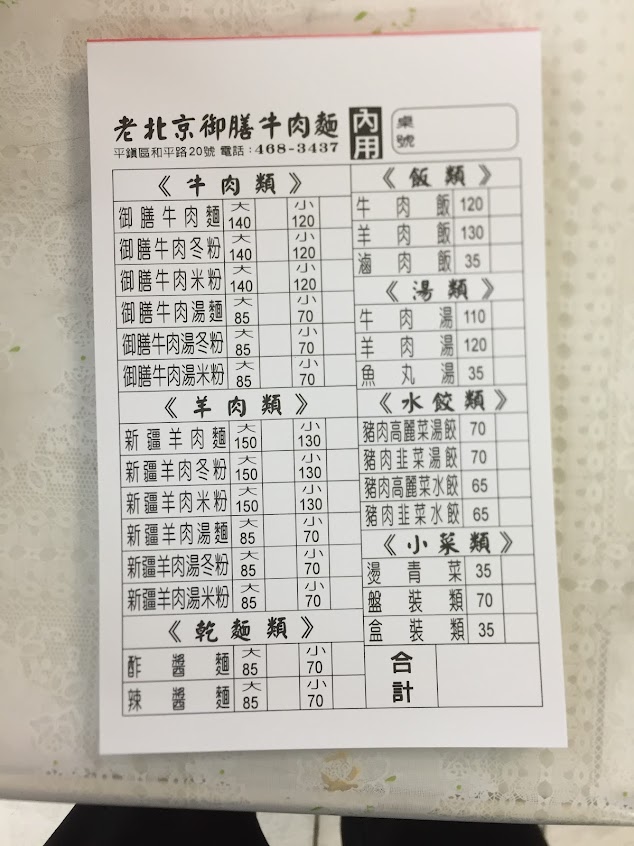 老北京御膳牛肉麵 內用 桌號
平鎮區和平路20號 電話：468-3437
《牛肉類》
御膳牛肉麵 大140 小120
御膳牛肉冬粉 大140 小120
御膳牛肉米粉 大140 小120
御膳牛肉湯麵 大85 小70
御膳牛肉湯冬粉 大85 小70
御膳牛肉湯米粉 大85 小70
《羊肉類》
新疆羊肉麵 大150 小130
新疆羊肉冬粉 大150 小130
新疆羊肉米粉 大150 小130
新疆羊肉湯麵 大85 小70
新疆羊肉湯冬粉 大85 小70
新疆羊肉湯米粉 大85 小70
《乾麵類》
酢醬麵 大85 小70
辣醬麵 大85 小70
《飯類》
牛肉飯 120
羊肉飯 130
滷肉飯 35
《湯類》
牛肉湯 110
羊肉湯 120
魚丸湯 35
《水餃類》
豬肉高麗菜湯餃 70
豬肉韭菜湯餃 70
豬肉高麗菜水餃 65
豬肉韭菜水餃 65
《小菜類》
燙青菜 35
盤裝類 70
盒裝類 35
合計